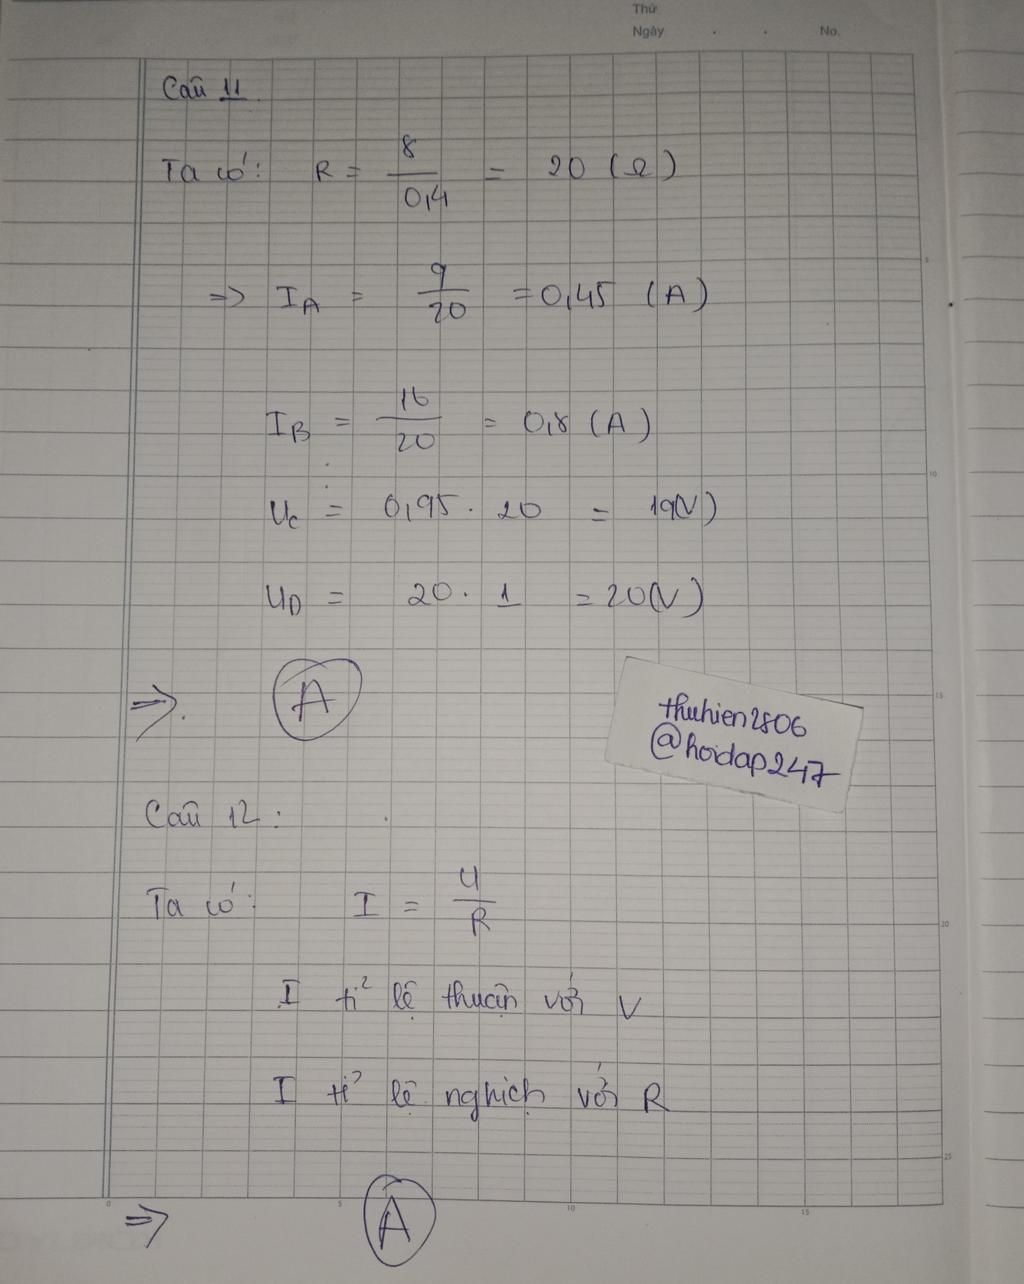 Thứ
Ngày . . No.
Câu 11
Ta có: R = 8/0,4 = 20 (Ω)
=> I_A = 9/20 = 0,45 (A)
I_B = 16/20 = 0,8 (A)
U_C = 0,95 . 20 = 19(V)
U_D = 20 . 1 = 20(V)
=> A
thuhien2806
@hoidap247
Câu 12:
Ta có: I = U/R
I tỉ lệ thuận với V
I tỉ lệ nghịch với R
=> A
5
10
15
20
25
0 5 10 15